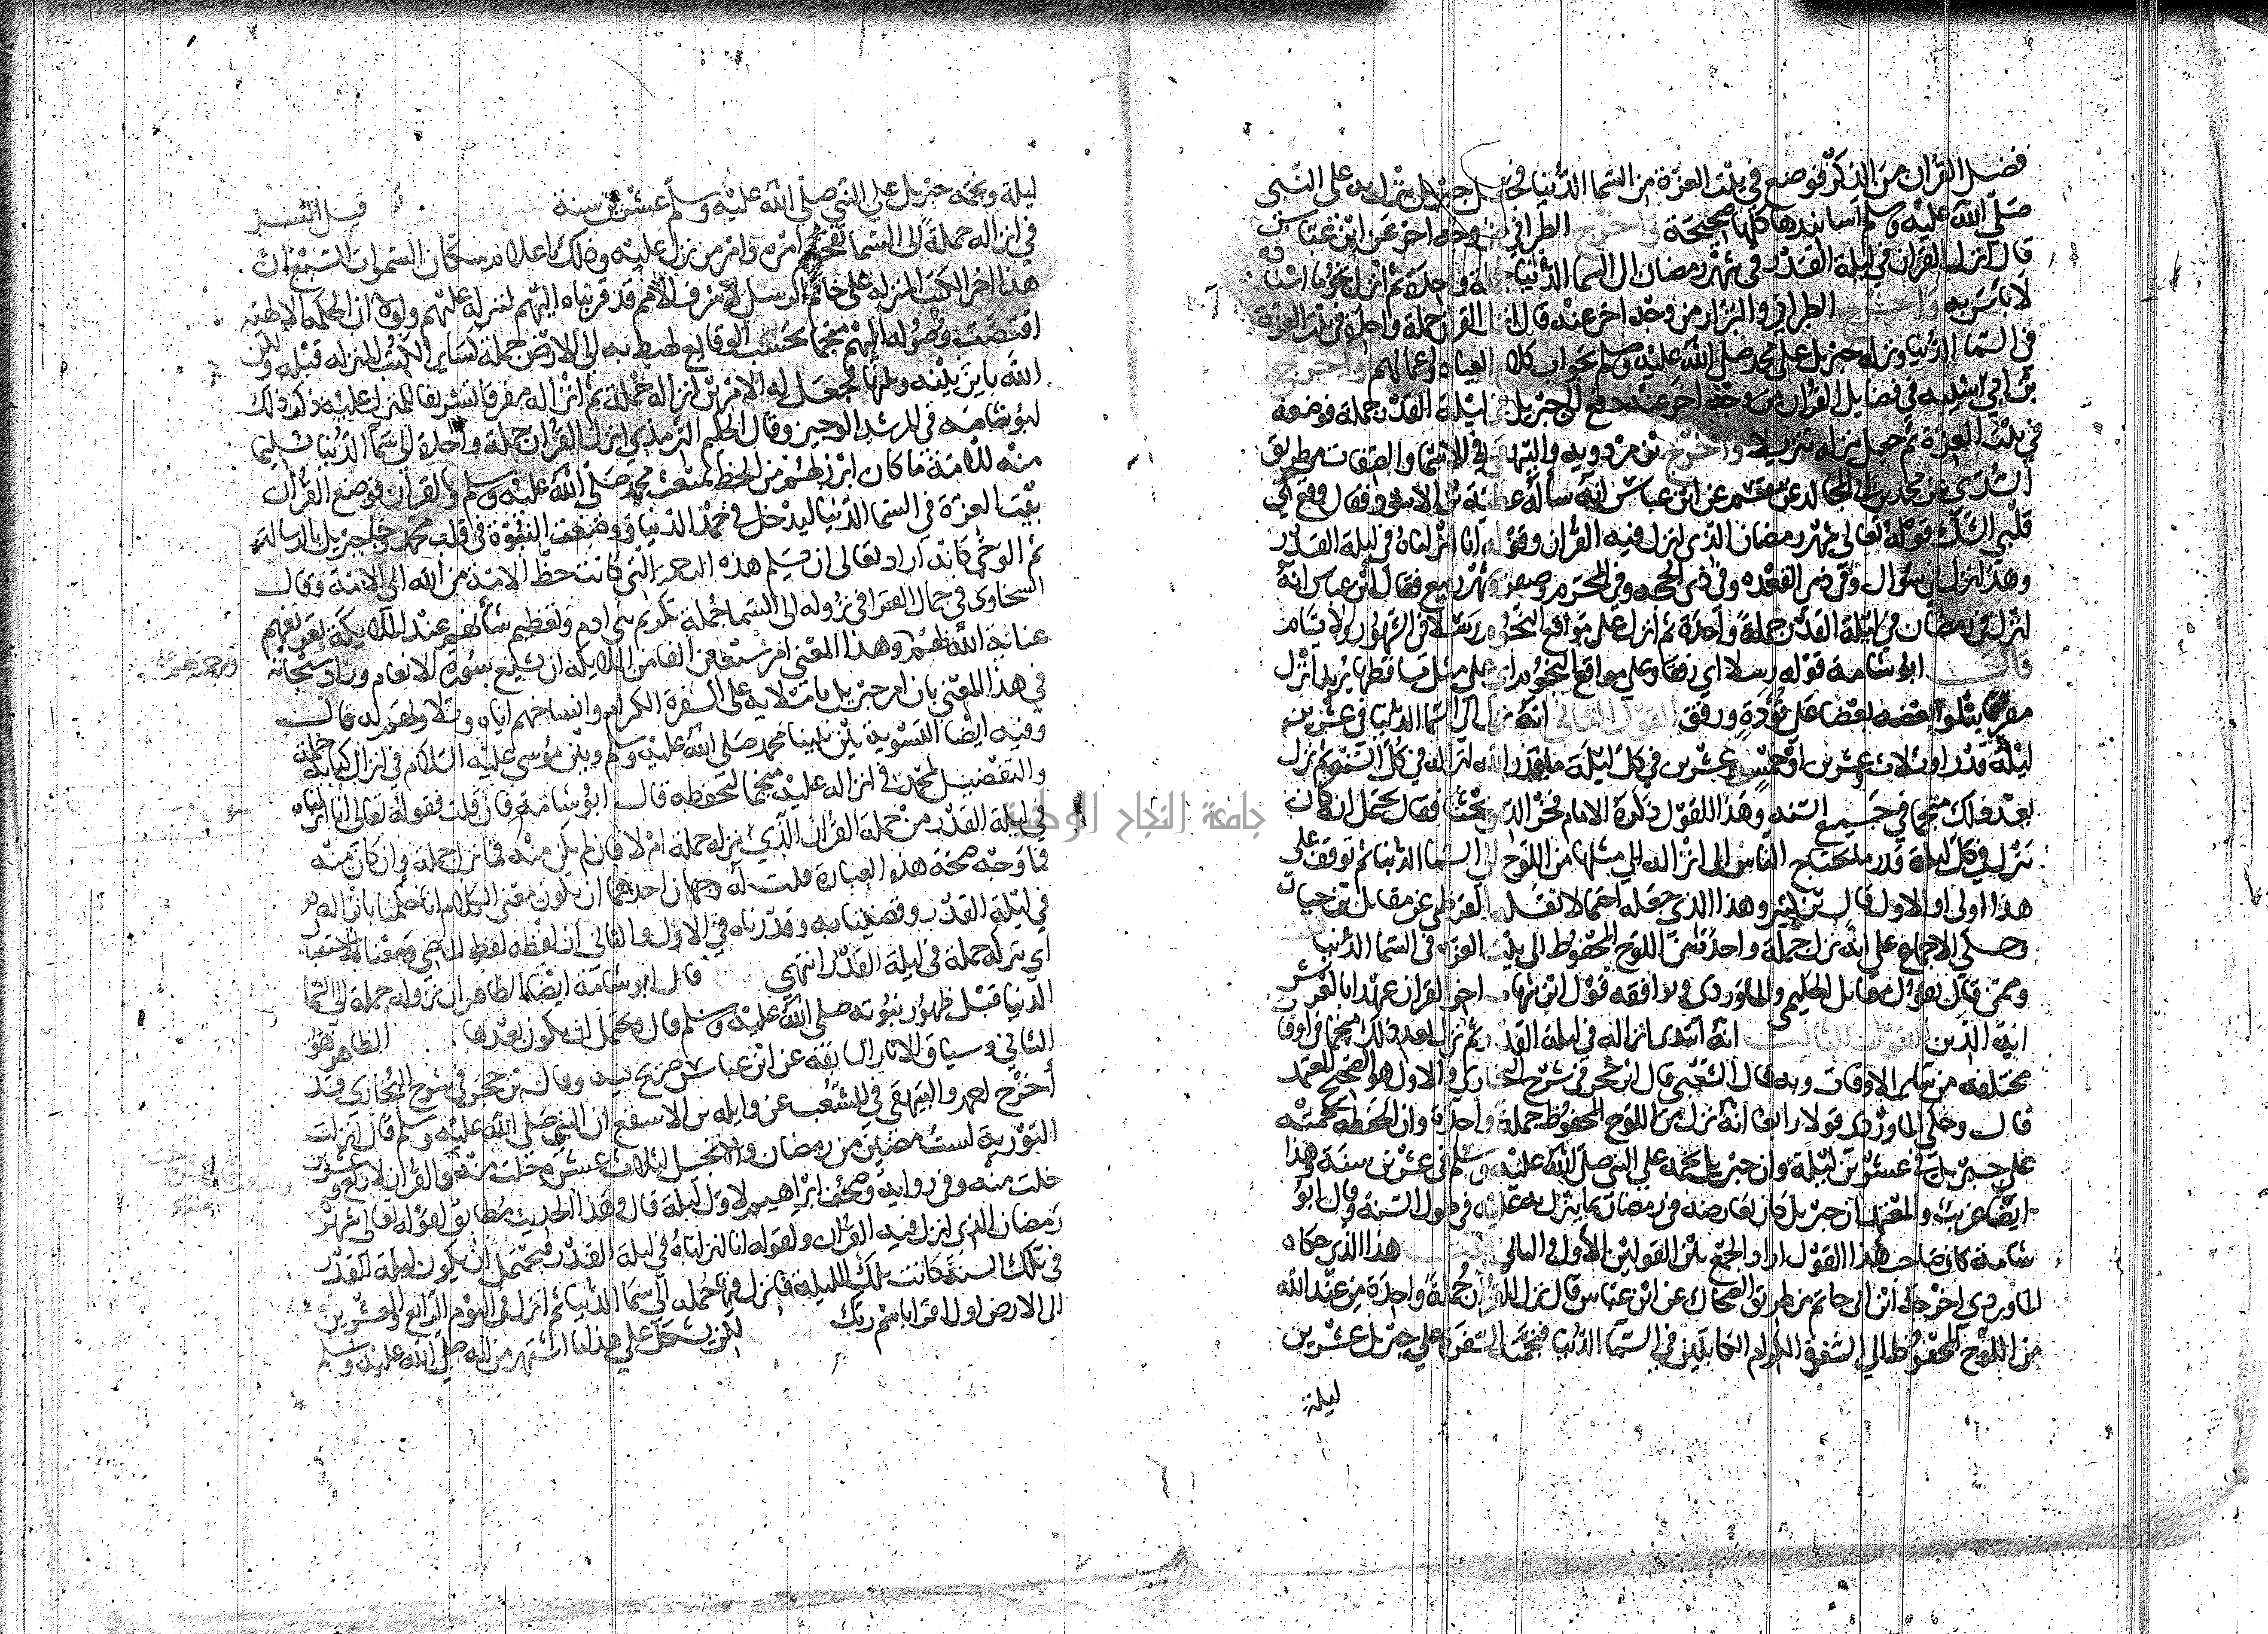 فصل القران من الذكر فوضع في بيت العزة من السما الدنيا فجعل جبريل ينزل به على النبي
صلى الله عليه وسلم اسانيدها كلها صحيحة واخرج الطبراني من وجه اخر عن ابن عباس
قال انزل القران في ليلة القدر في شهر رمضان الى السما الدنيا جملة واحدة ثم انزل نجوما اسناده
لا باس به واخرج الطبراني والبزار من وجه اخر عنه قال انزل القران جملة واحدة في بيت العزة
في السما الدنيا ونزله جبريل على محمد صلى الله عليه وسلم بجواب كلام العباد واعمالهم واخرج
بن ابي شيبه في فضايل القران من وجه اخر عنه دفع الى جبريل في ليلة القدر جملة فوضعه
في بيت العزة ثم جعل ينزله تنزيلا واخرج بن مردويه والبيهقي في الاسما والصفات من طريق
السدي عن محمد عن ابن ابي المجالد عن مقسم عن ابن عباس انه ساله عطية بن الاسود فقال وقع في
قلبي الشك قوله تعالى شهر رمضان الذي انزل فيه القران وقوله انا انزلناه في ليلة القدر
وهذا انزل في شوال وفي ذي القعده وفي ذي الحجه وفي المحرم وصفر وشهر ربيع فقال ابن عباس انه
انزل في رمضان في ليلة القدر جملة واحدة ثم انزل على مواقع النجوم رسلا في الشهور والايام
قال ابو شامة قوله رسلا اي رفقا وعلى مواقع النجوم اي على مثل مساقطها يريد انزل
مفرقا يتلوا بعضه بعضا على تؤدة ورفق القول الثاني انه نزل الى السما الدنيا في عشرين
ليلة قدر او ثلاث وعشرين او خمس وعشرين في كل ليلة ما يقدر الله انزاله في كل السنة ثم نزل
بعد ذلك منجما في جميع السنه وهذا القول ذكره الامام فخر الدين بحثا فقال يحتمل انه كان
ينزل في كل ليلة قدر ما يحتاج الناس الى انزاله الى مثلها من اللوح الى السما الدنيا ثم توقف على
هذا اولى او الاول قال بن كثير وهذا الذي جعله احتمالا نقله القرطبي عن مقاتل بن حيان
وحكى الاجماع على انه نزل جملة واحدة من اللوح المحفوظ الى بيت العزة في السما الدنيا قلت
وممن قال بقول مقاتل الحليمي والماوردي ويوافقه قول ابن شهاب اخر القران عهدا بالعرش
اية الدين القول الثالث انه ابتدى انزاله في ليلة القدر ثم نزل بعد ذلك منجما في اوقات
مختلفه من ساير الاوقات وبه قال الشعبي قال ابن حجر في شرح البخاري والاول هو الصحيح المعتمد
قال وحكى الماوردي قولا رابعا انه نزل من اللوح المحفوظ جملة واحدة وان الحفظة نجمته
على جبريل في عشرين ليلة وان جبريل نجمه على النبي صلى الله عليه وسلم في عشرين سنة وهذا
ايضا غريب والمعتمد ان جبريل كان يعارضه في رمضان بما ينزل به عليه في طول السنة وقال ابو
شامة كان صاحب هذا القول اراد الجمع بين القولين الاول والثاني قلت هذا الذي حكاه
الماوردي اخرجه ابن ابي حاتم من طريق الضحاك عن ابن عباس قال نزل القران جملة واحدة من عند الله
من اللوح المحفوظ الى السفرة الكرام الكاتبين في السما الدنيا فنجمته السفرة على جبريل عشرين
ليلة
ليلة ونجمه جبريل على النبي صلى الله عليه وسلم عشرين سنة قيل السر
في انزاله جملة الى السما تفخيم امره وامر من نزل عليه وذلك باعلام سكان السموات السبع ان
هذا اخر الكتب المنزله على خاتم الرسل لاشرف الامم قد قربناه اليهم لننزله عليهم ولولا ان الحكمة الالهيه
اقتضت وصوله اليهم منجما بحسب الوقايع لهبط به الى الارض جملة كساير الكتب المنزله قبله ولكن
الله باين بينه وبينها فجعل له الامرين انزاله جملة ثم انزاله مفرقا تشريفا للمنزل عليه ذكر ذلك
ابو شامه في المرشد الوجيز وقال الحكيم الترمذي انزل القران جملة واحدة الى سما الدنيا تسليما
منه للامة ما كان ابرز لهم من الحظ بمبعث محمد صلى الله عليه وسلم وبالقران فوضع القران
ببيت العزة في السما الدنيا ليدخل في حد الدنيا ووضعت النبوة في قلب محمد وجا جبريل بالرسالة
ثم الوحي كانه اراد تعالى ان يسلم هذه الرحمة التي كانت حظ الامة من الله الى الامة وقال
السخاوي في جمال القرا في نزوله الى السما جملة تكريم بني ادم وتعظيم شانهم عند الملايكة وتعريفهم
عناية الله بهم ورحمته لهم ولهذا المعنى امر سبعين الفا من الملايكه ان تشيع سورة الانعام وزاد سبحانه
في هذا المعنى بان امر جبريل باملايه على السفرة الكرام وانساخهم اياه وتلاوتهم له قال
وفيه ايضا التسوية بين نبينا محمد صلى الله عليه وسلم وبين موسى عليه السلام في انزال كتابه جملة
والتفضيل لمحمد في انزاله عليه منجما لتحفظه قال ابو شامة فان قلت فقوله تعالى انا انزلناه
في ليلة القدر من جملة القران الذي نزل جملة ام لا فان لم يكن منه فما نزل جملة وان كان منه
فما وجه صحة هذه العبارة قلت له وجهان احدهما ان يكون معنى الكلام انا حكمنا بانزاله
في ليلة القدر وقضيناه وقدرناه في الازل والثاني ان لفظه لفظ الماضي ومعناه الاستقبال
اي ننزله جملة في ليلة القدر انتهى قال ابو شامة ايضا الظاهر ان نزوله جملة الى السما
الدنيا قبل ظهور نبوته صلى الله عليه وسلم قال ويحتمل ان يكون بعدها الظاهر هو
الثاني وسياق الاثار السابقة عن ابن عباس صريح فيه وقال بن حجر في شرح البخاري قد
أخرج احمد والبيهقي في الشعب عن واثله بن الاسقع ان النبي صلى الله عليه وسلم قال انزلت
التورية لست مضين من رمضان والانجيل لثلاث عشرة خلت منه والقران لاربع وعشرين
خلت منه وفي رواية وصحف ابراهيم لاول ليلة قال وهذا الحديث مطابق لقوله تعالى شهر
رمضان الذي انزل فيه القران ولقوله انا انزلناه في ليلة القدر فيحتمل ان يكون ليلة القدر
في تلك السنة كانت تلك الليلة فانزل فيها جملة الى سما الدنيا ثم انزل في اليوم الرابع والعشرين
الى الارض اول اقرا باسم ربك لكن يشكل على هذا ما اشتهر من انه صلى الله عليه وسلم
جامعة النجاح الوطنية